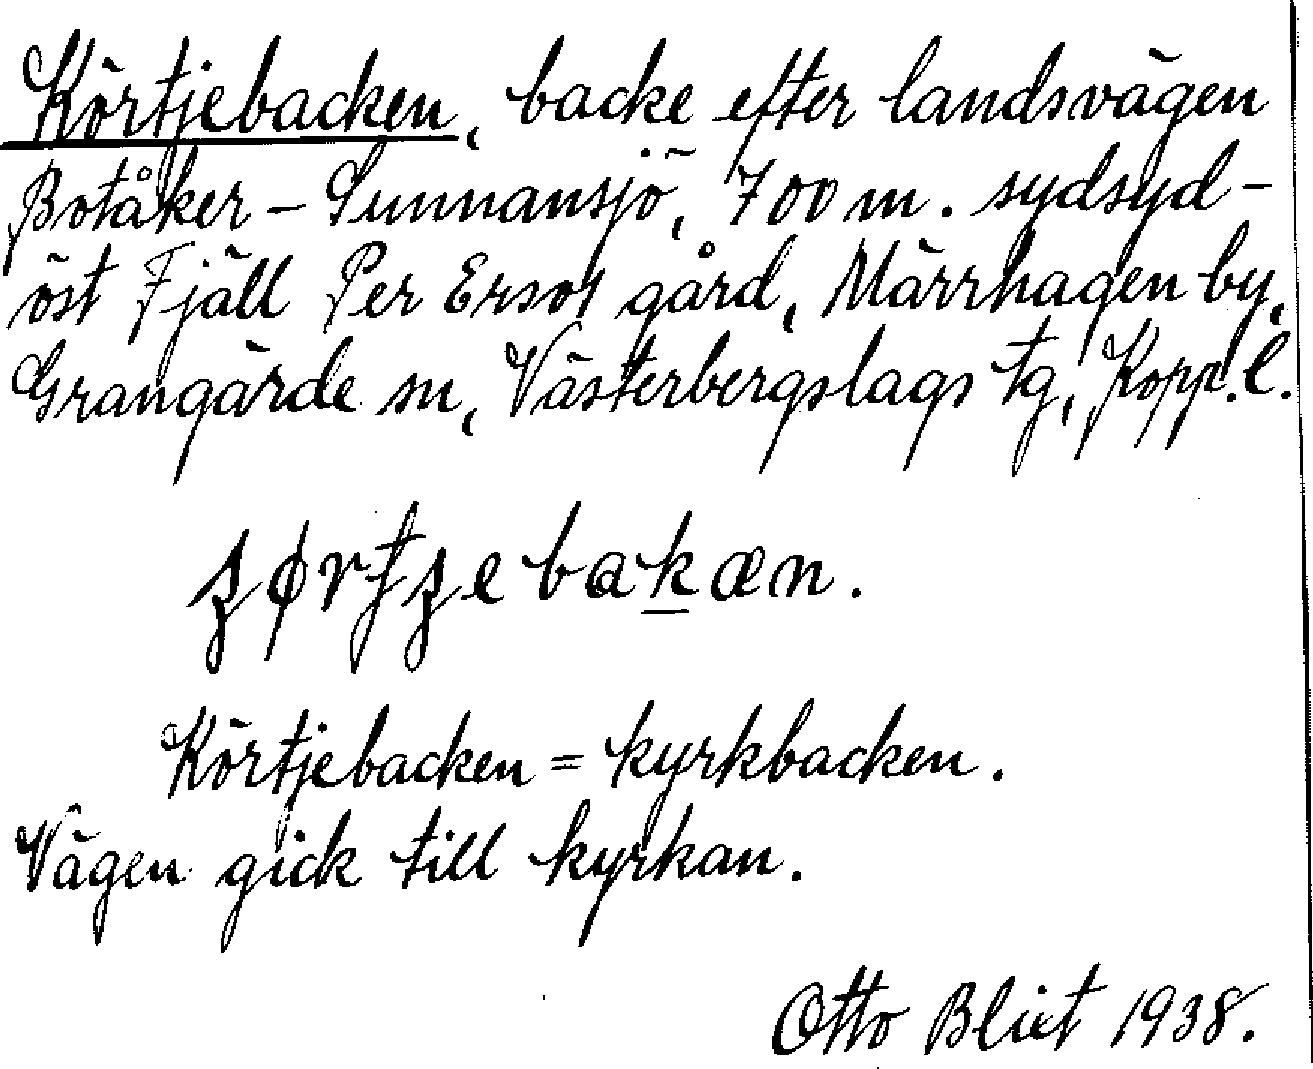 Körtjebacken, backe efter landsvägen
Botåker - Sunnansjö, 700 m. sydsyd-
öst Fjäll Per Ersos gård, Märrhagen by,
Grangärde sn, Västerbergslags tg, Kopp. l.
bakæn.
Körtjebacken = kyrkbacken.
Vägen gick till kyrkan.
Otto Blixt 1938.